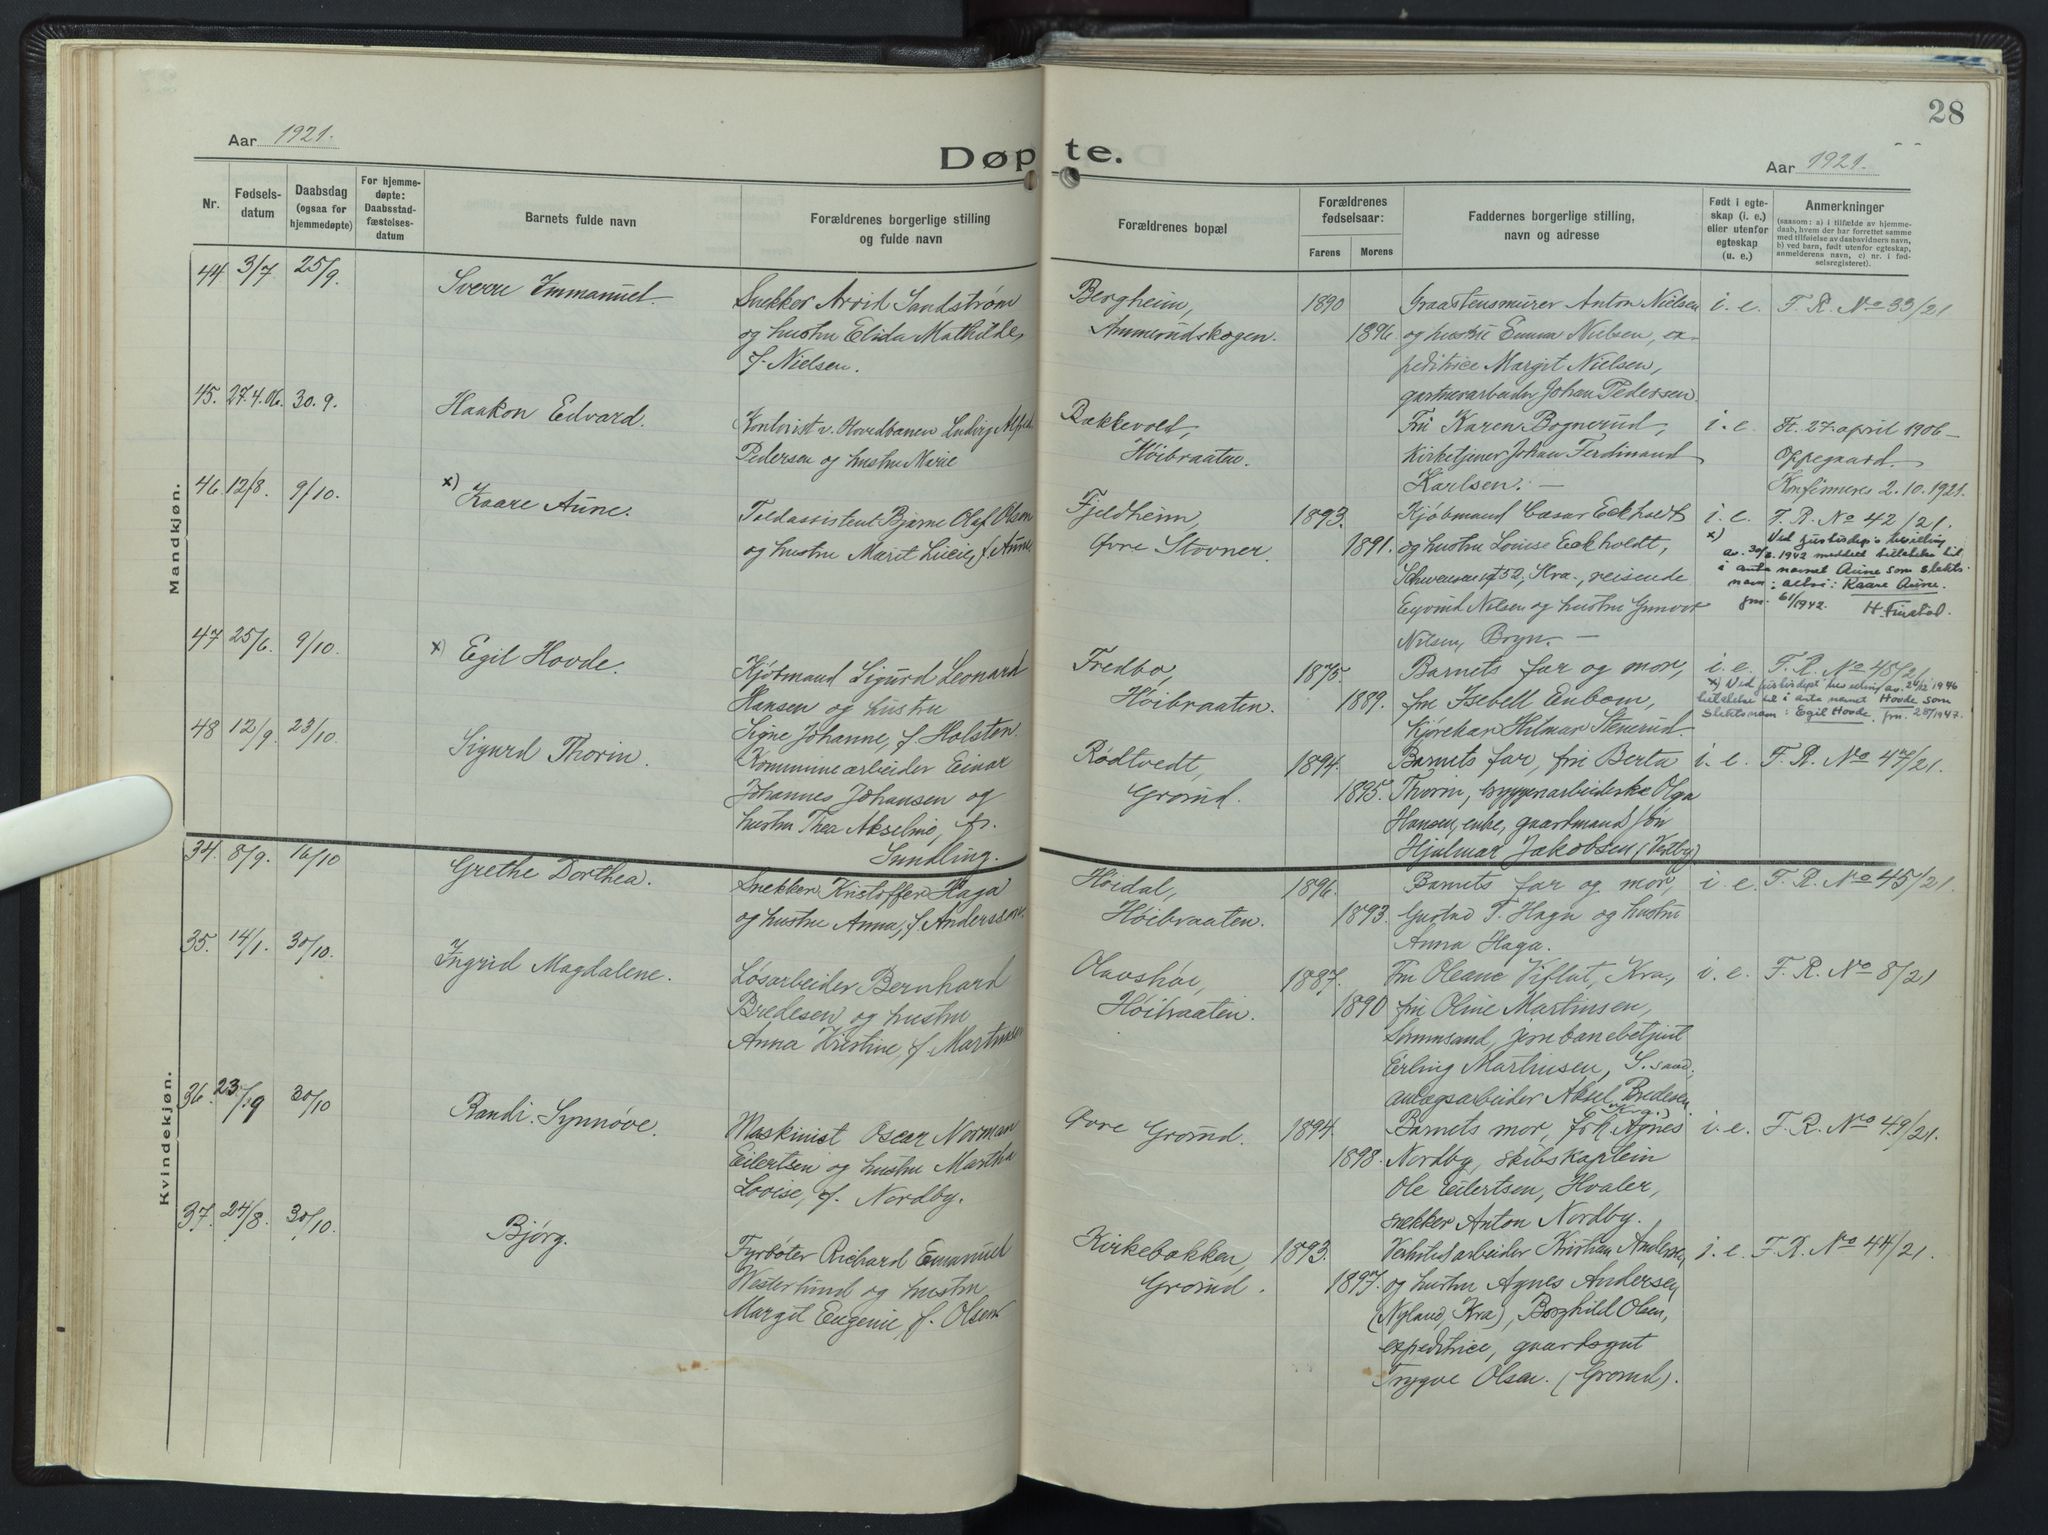 28
Aar 1921.
Døpte.
Aar 1921.
Nr.
Fødsels-
datum
Daabsdag
(ogsaa for
hjemmedøpte)
For hjemme-
døpte:
Daabsstad-
fæstelses-
datum
Barnets fulde navn
Forældrenes borgerlige stilling
og fulde navn
Forældrenes bopæl
Forældrenes
fødselsaar:
Farens
Morens
Faddernes borgerlige stilling,
navn og adresse
Født i egte-
skap (i. e.)
eller utenfor
egteskap
(u. e.)
Anmerkninger
(saasom: a) i tilfælde av hjemme-
daab, hvem der har forrettet samme
med tilføielse av daabsvidners navn,
b) ved barn, født utenfor egteskap,
anmelderens navn, c) nr. i fød-
selsregisteret).
Mandkjøn.
44 3/7 25/9.
Sverre Immanuel.
Snekker Arvid Sandstrøm
og hustru Elida Mathilde,
f. Nielsen.
Bergheim,
Ammerudskogen.
1890
1896.
Graastensmurer Anton Nielsen
og hustru Emma Nielsen, ex-
peditrice Margit Nielsen,
gartnerarbeider Johan Pedersen.
i. e. F. R. No 33/21
45. 27.4.06. 30.9.
Haakon Edvard.
Kontorist v. Hovedbanen Ludvig Alfred
Pedersen og hustru Marie
Bakkevold,
Høibraaten.
Fru Karen Bognerud,
Kirketjener Johan Ferdinand
Karlsen. —
i. e. Ft. 27 april 1906 —
Oppegaard.
Konfirmeres 2.10.1921.
46. 12/8. 9/10.
x) Kaare Aune.
Toldassistent Bjarne Olaf Olson
og hustru Marit Lucie, f. Aune
Fjeldheim,
Øvre Stovner.
1893.
1891.
Kjøbmand Cæsar Eckholdt
og hustru Louise Eckholdt,
Schwensensgt 52, Kra., reisende
Eyvind Nilsen og hustru Gunvor
Nilsen, Bryn. —
i. e. F. R. No 42/21.
x) Ved justisdep's bevilling
av 30/6 1942 meddelt tillatelse til
i anta navnet Aune som slekts-
navn: altså: Kaare Aune.
jnr. 61/1942. H. Finstad.
47 25/6. 9/10.
x) Egil Hovde.
Kjøbmand Sigurd Leonard
Hansen og hustru
Signe Johanne, f. Holsten.
Fredbo,
Høibraaten.
1875.
1889.
Barnets far og mor,
fru Isebell Enbom,
Kjørekar Hilmar Stenerud.
i. e. F. R. No 45/21
x) Ved justisdept bevilling av 21/12 1946
tillatelse til i anta navnet Hovde som
slektsnavn: Egil Hovde. jnr. 28/1947.
48 12/9. 23/10.
Sigurd Thorin.
Kommunearbeider Einar
Johannes Johansen og
hustru Thea Akseline, f.
Sundling.
Rødtvedt,
Grorud.
1894.
1895.
Barnets far, fru Berta
Thorin, byggenarbeiderske Olga
Hansen, enke, gaardmandssøn
Hjalmar Jakobsen (Vestby)
i. e. F. R. No 47/21.
Kvindekjøn.
34. 8/9. 16/10
Grethe Dorthea.
Snekker Kristoffer Haga
og hustru Anna, f. Anderssen.
Høidal,
Høibraaten.
1896.
1893.
Barnets far og mor,
Gustav T. Hagn og hustru
Anna Haga.
i. e. F. R. No 45/21.
35. 14/1. 30/10.
Ingrid Magdalene.
Løsarbeider Bernhard
Bredesen og hustru
Anna Kristine, f. Martinsen
Olavshøi,
Høibraaten.
1887.
1890
Fru Oleane Viflat, Kra.,
fru Oline Martinsen,
Sørumsand, jernbanebetjent
Erling Martinsen, S. sand,
anlægsarbeider Aksel Bredesen
(Kra.)
i. e. F. R. No 8/21
36. 23/9 30/10
Randi Synnøve.
Maskinist Oscar Norman
Eilertsen og hustru Martha
Lovise, f. Nordby.
Øvre Grorud.
1894.
1898.
Barnets mor, frk Agnes
Nordby, skibskaptein
Ole Eilertsen, Hvaler,
snekker Anton Nordby.
i. e. F. R. No 49/21.
37. 24/8. 30/10.
Bjørg.
Fyrbøter Richard Emanuel
Westerlund og hustru
Margit Eugenie, f. Olsen
Kirkebakken,
Grorud.
1893.
1897.
Verkstedarbeider Kristian Andersen
og hustru Agnes Andersen
(Nyland, Kra), Borghild Olsen,
expeditrice, gaardsgut
Trygve Olsen. (Grorud).
i. e. F. R. No 44/21.